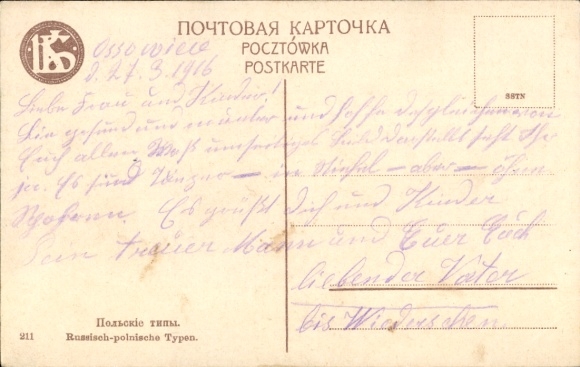 ПОЧТОВАЯ КАРТОЧКА
POCZTÓWKA
POSTKARTE
SSTN
Ossowiece
d. 27. 3. 1916
Liebe Frau und Kinder!
Bin gesund und munter und hoffe desgleichen von
Euch allen Was umseitiges Bild darstellt seht Ihr
ja. Es sind – in – aber – ohne
Es grüßt Dich und Kinder
Dein treuer Mann und Euer Euch
liebender Vater
bis Wiedersehen
Польскіе типы.
211 Russisch-polnische Typen.